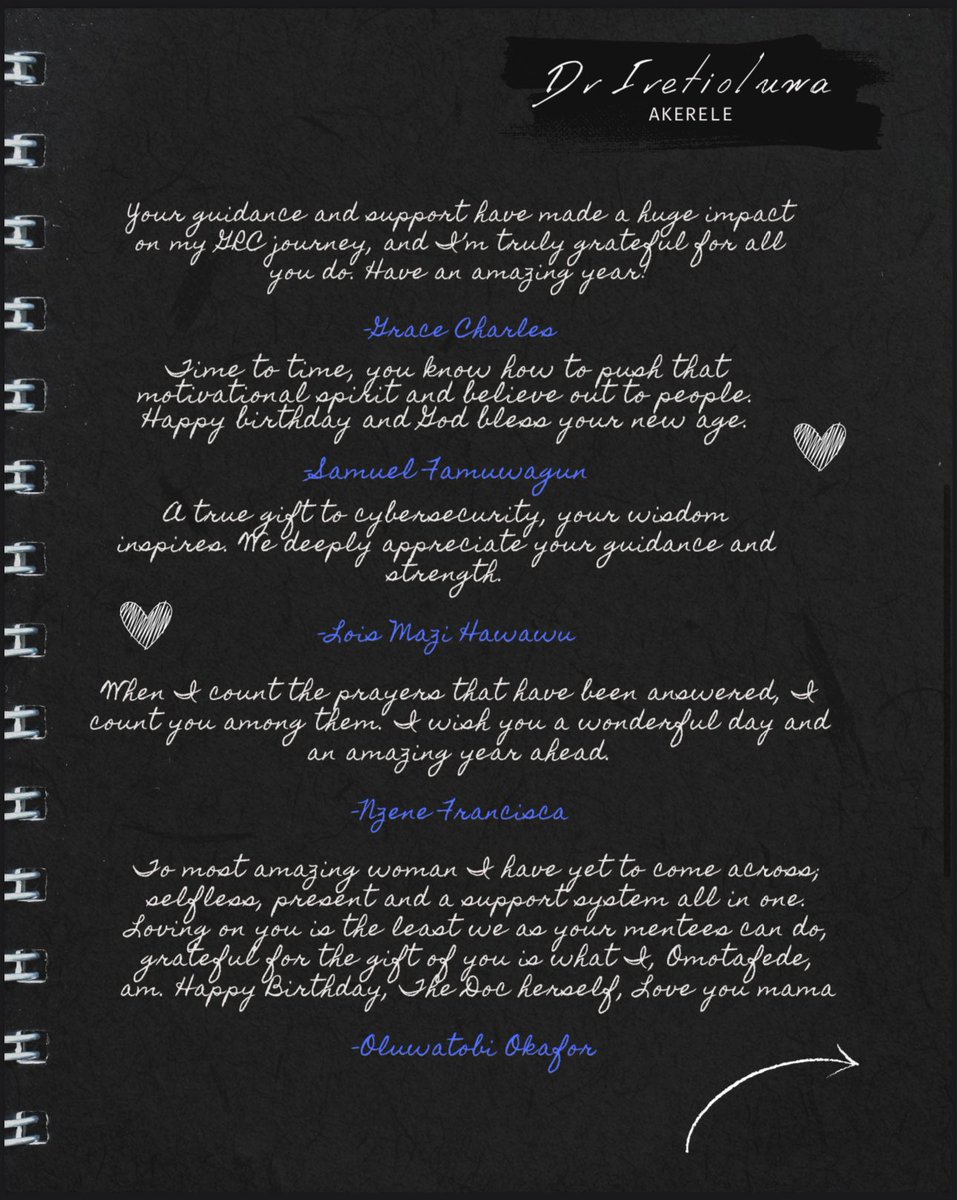 Dr Iretioluwa
AKERELE
Your guidance and support have made a huge impact
on my GRC journey, and I'm truly grateful for all
you do. Have an amazing year!
-Grace Charles
Time to time, you know how to push that
motivational spirit and believe out to people.
Happy birthday and God bless your new age.
-Samuel Famuwagun
A true gift to cybersecurity, your wisdom
inspires. We deeply appreciate your guidance and
strength.
-Lois Mazi Hawawu
When I count the prayers that have been answered, I
count you among them. I wish you a wonderful day and
an amazing year ahead.
-Nzene Francisca
To most amazing woman I have yet to come across;
selfless, present and a support system all in one.
Loving on you is the least we as your mentees can do,
grateful for the gift of you is what I, Omotafede,
am. Happy Birthday, The Doc herself, Love you mama
-Oluwatobi Okafor